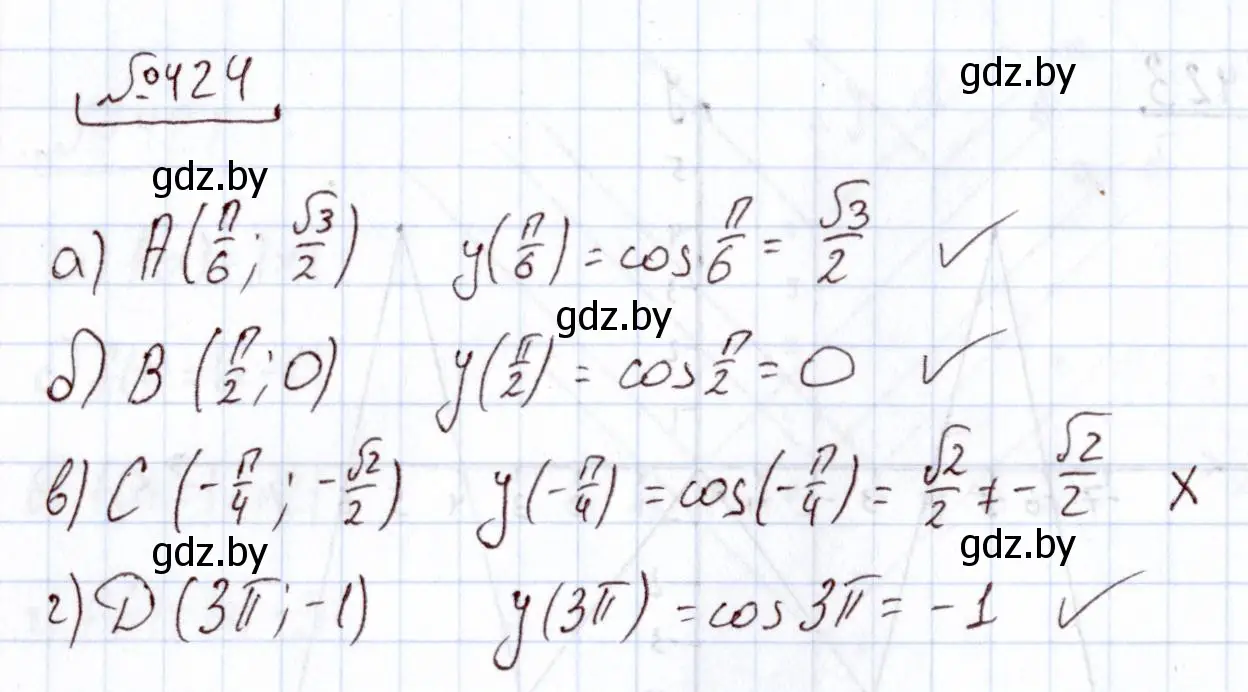 №424
gdz.by
gdz.by
а) A(π/6; √3/2) y(π/6) = cos π/6 = √3/2 ✓
gdz.by
б) B (π/2; 0) y(π/2) = cos π/2 = 0 ✓
в) C (-π/4; -√2/2) y(-π/4) = cos(-π/4) = √2/2 ≠ -√2/2 ×
gdz.by
gdz.by
г) D (3π; -1) y(3π) = cos 3π = -1 ✓